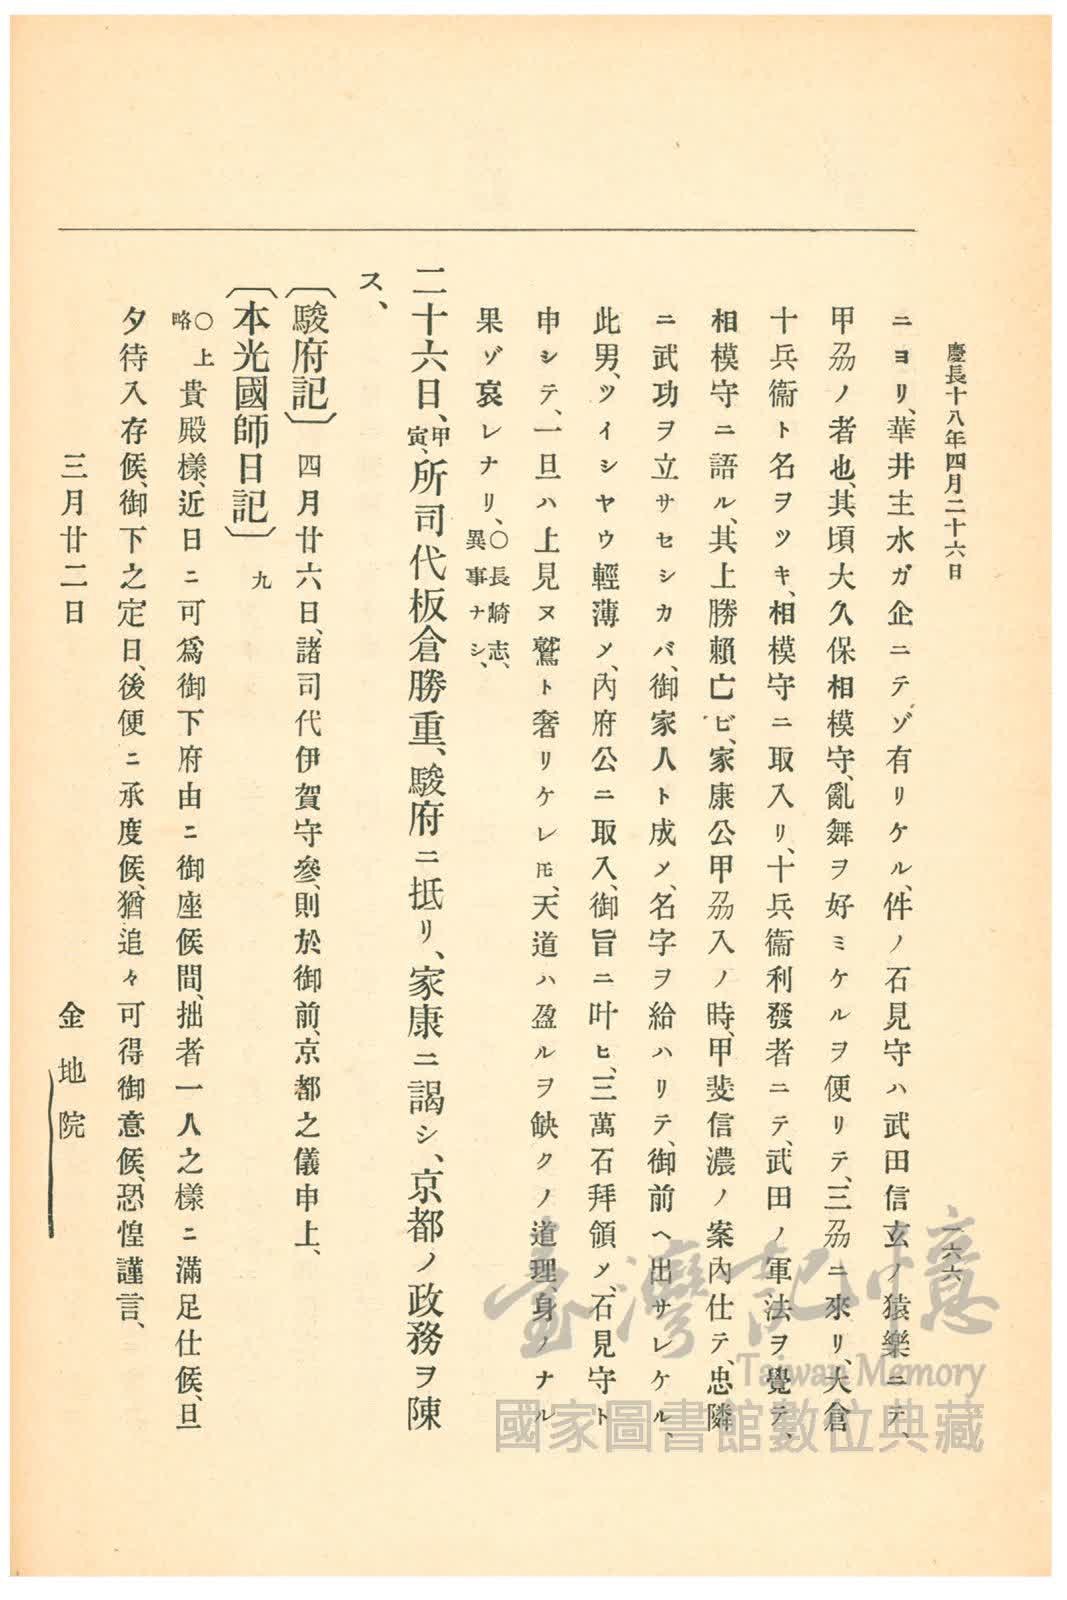 慶長十八年四月二十六日
一六六
ニヨリ、華井主水ガ企ニテゾ有リケル、件ノ石見守ハ武田信玄ノ猿樂ニテ、
甲刕ノ者也、其頃大久保相模守、亂舞ヲ好ミケルヲ便リテ、三刕ニ來リ、大倉
十兵衞ト名ヲツキ、相模守ニ取入リ、十兵衞利發者ニテ、武田ノ軍法ヲ覺テ、
相模守ニ語ル、其上勝賴亡ビ、家康公甲刕入ノ時、甲斐信濃ノ案內仕テ、忠隣
ニ武功ヲ立サセシカバ、御家人ト成メ、名字ヲ給ハリテ、御前ヘ出サレケル、
此男、ツイシヤウ輕薄メ、內府公ニ取入、御旨ニ叶ヒ、三萬石拜領メ、石見守ト
申シテ、一旦ハ上見ヌ鷲ト奢リケレ𪜈、天道ハ盈ルヲ缺クノ道理、身ノナル
果ゾ哀レナリ、○長崎志、異事ナシ、
二十六日、甲寅、所司代板倉勝重、駿府ニ抵リ、家康ニ謁シ、京都ノ政務ヲ陳
ス、
〔駿府記〕 四月廿六日、諸司代伊賀守參、則於御前、京都之儀申上、
〔本光國師日記〕 九
○上略 貴殿樣、近日ニ可爲御下府由ニ御座候間、拙者一人之樣ニ滿足仕候、旦
夕待入存候、御下之定日、後便ニ承度候、猶追々可得御意候、恐惶謹言、
三月廿二日 金地院
臺灣記憶
Taiwan Memory
國家圖書館數位典藏